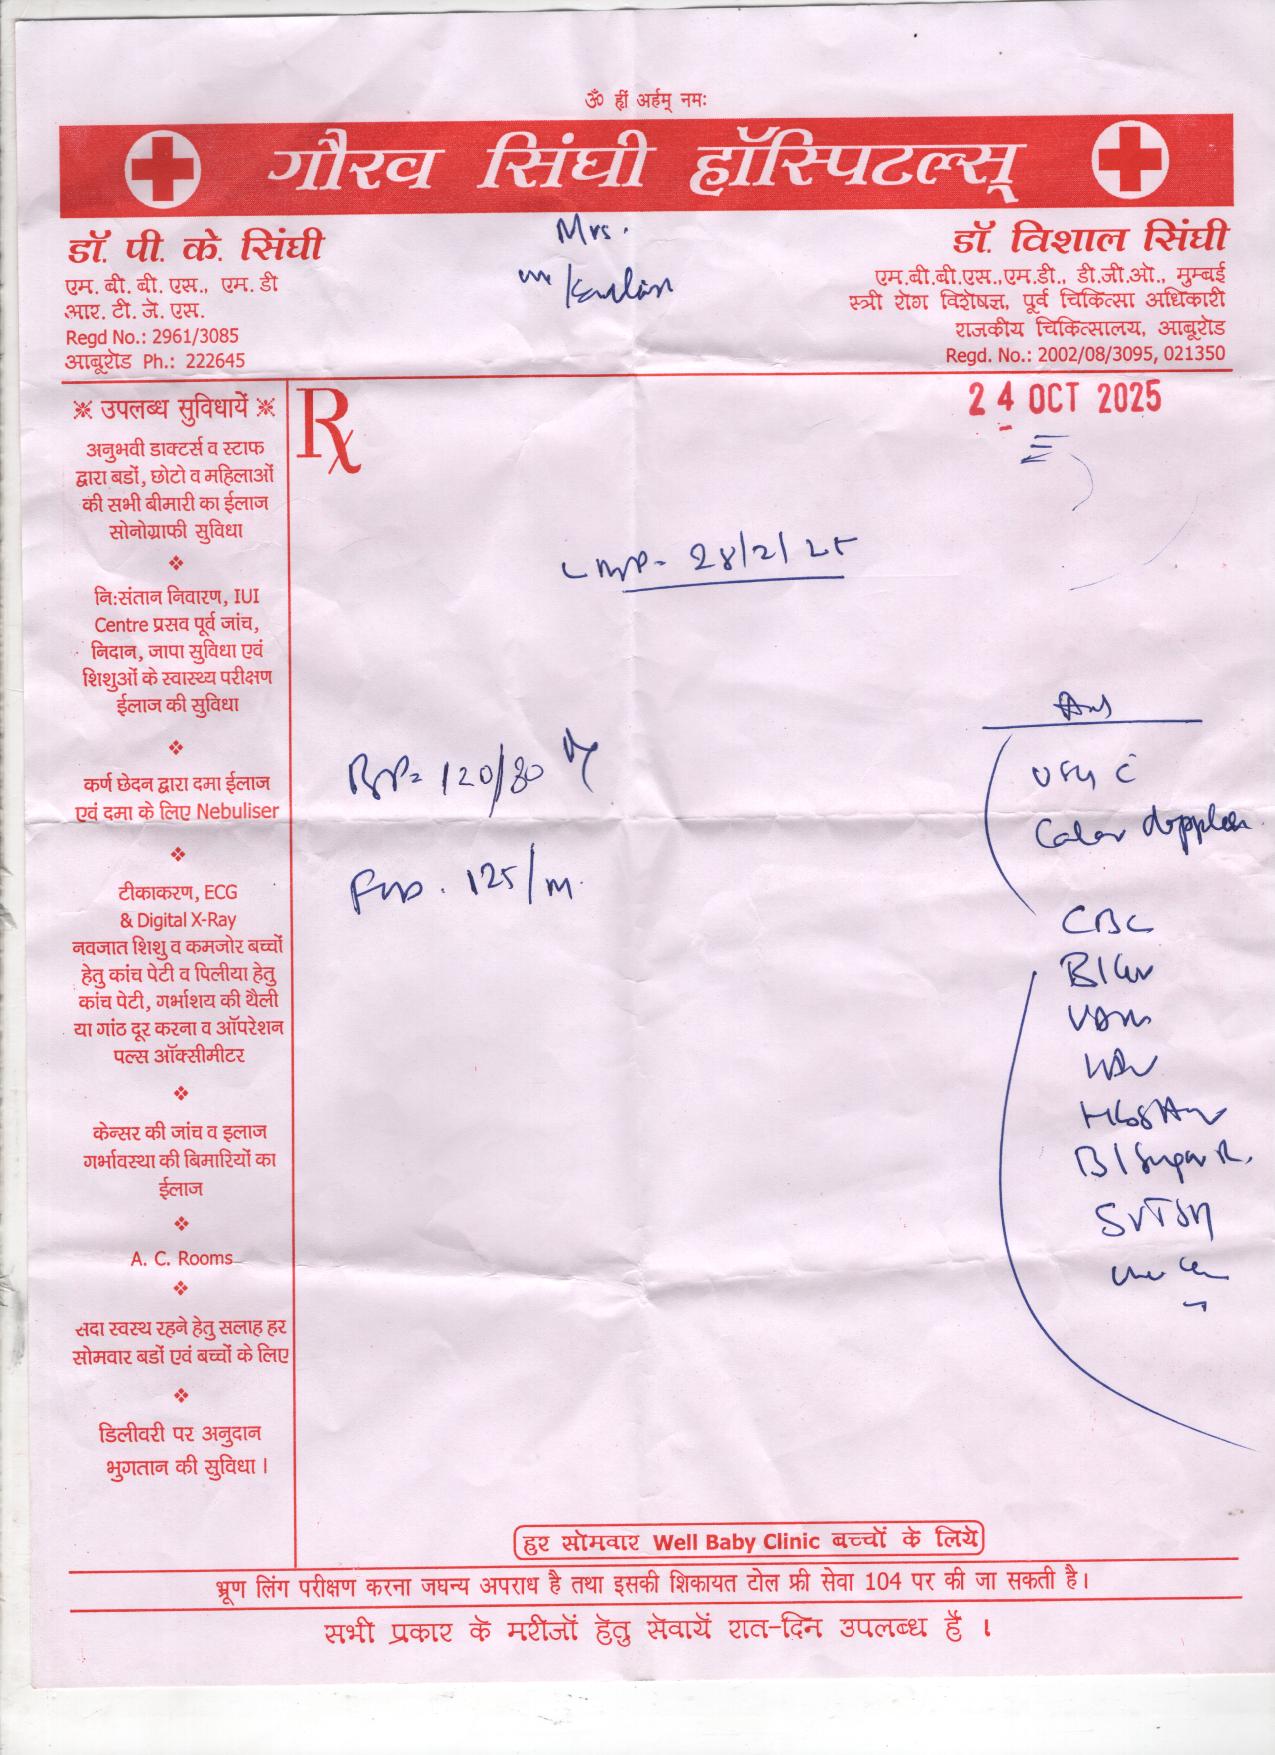 ॐ ह्रीं अर्हम् नमः
गौरव सिंघी हॉस्पिटल्स्
डॉ. पी. के. सिंघी
एम. बी. बी. एस., एम. डी
आर. टी. जे. एस.
Regd No.: 2961/3085
आबूरोड Ph.: 222645
Mrs.
डॉ. विशाल सिंघी
एम.बी.बी.एस.,एम.डी., डी.जी.ओ., मुम्बई
स्त्री रोग विशेषज्ञ, पूर्व चिकित्सा अधिकारी
राजकीय चिकित्सालय, आबूरोड
Regd. No.: 2002/08/3095, 021350
उपलब्ध सुविधायें
अनुभवी डाक्टर्स व स्टाफ
द्वारा बडों, छोटो व महिलाओं
की सभी बीमारी का ईलाज
सोनोग्राफी सुविधा
नि:संतान निवारण, IUI
Centre प्रसव पूर्व जांच,
निदान, जापा सुविधा एवं
शिशुओं के स्वास्थ्य परीक्षण
ईलाज की सुविधा
कर्ण छेदन द्वारा दमा ईलाज
एवं दमा के लिए Nebuliser
टीकाकरण, ECG
& Digital X-Ray
नवजात शिशु व कमजोर बच्चों
हेतु कांच पेटी व पिलीया हेतु
कांच पेटी, गर्भाशय की थैली
या गांठ दूर करना व ऑपरेशन
पल्स ऑक्सीमीटर
केन्सर की जांच व इलाज
गर्भावस्था की बिमारियों का
ईलाज
A. C. Rooms
सदा स्वस्थ रहने हेतु सलाह हर
सोमवार बडों एवं बच्चों के लिए
डिलीवरी पर अनुदान
भुगतान की सुविधा।
Rx
24 OCT 2025
LMP- 28/2/25
BP= 120/80
125/m.
Color doppler
CBC
B/Sugar R.
हर सोमवार Well Baby Clinic बच्चों के लिये
भ्रूण लिंग परीक्षण करना जघन्य अपराध है तथा इसकी शिकायत टोल फ्री सेवा 104 पर की जा सकती है।
सभी प्रकार के मरीजों हेतु सेवायें रात-दिन उपलब्ध हैं ।